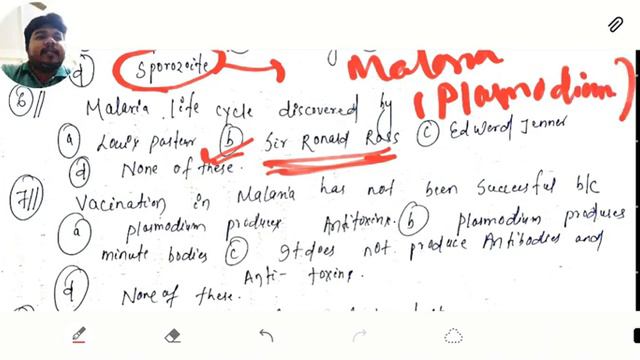 (d) Sporozoite → Malaria
(Plasmodium)
6// Malaria life cycle discovered by
(a) Louis pasteur (b) Sir Ronald Ross (c) Edword Jenner
(d) None of these.
7// Vacination in Malaria has not been Successful b/c
(a) plasmodium produces Antitoxins. (b) plasmodium produses
minute bodies (c) It does not produce Antibodies and
Anti-toxins.
(d) None of these.